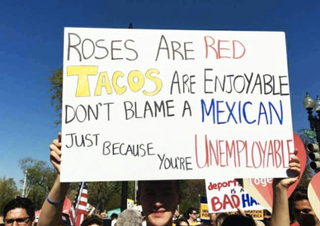 ROSES ARE RED
TACOS ARE ENJOYABLE
DON'T BLAME A MEXICAN
JUST BECAUSE YOU'RE UNEMPLOYABLE
deport
IS A
BAD